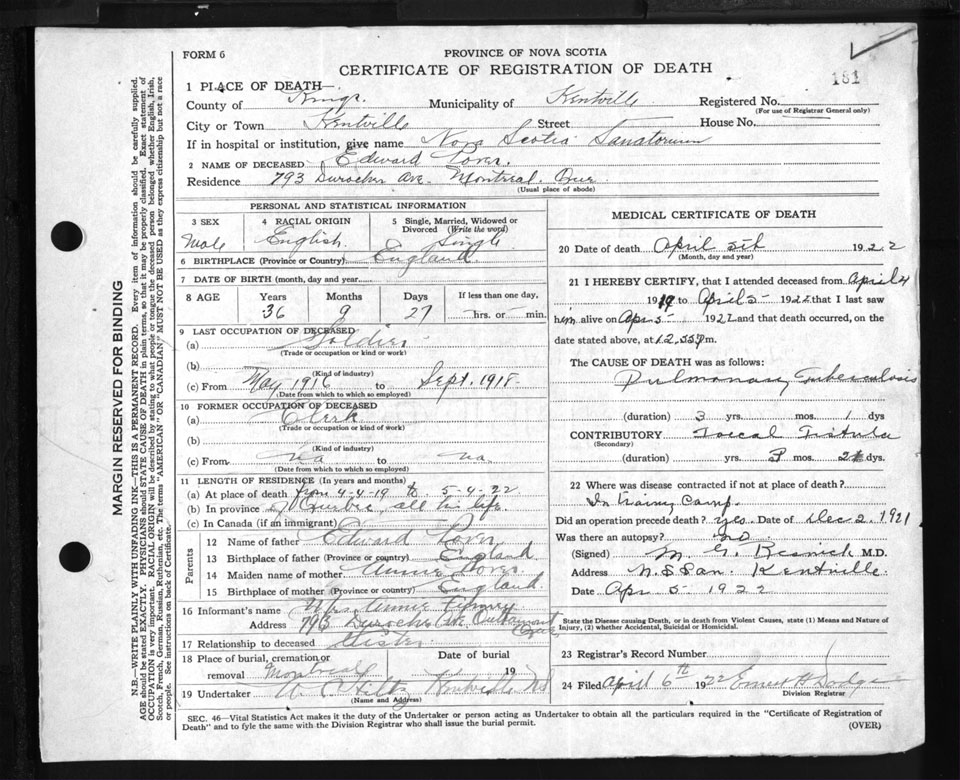 FORM 6
PROVINCE OF NOVA SCOTIA
CERTIFICATE OF REGISTRATION OF DEATH
181
1 PLACE OF DEATH—
County of Kings. Municipality of Kentville Registered No.
(For use of Registrar General only)
City or Town Kentville Street House No.
If in hospital or institution, give name Nova Scotia Sanatorium
2 NAME OF DECEASED Edward
Residence 793 Durocher Ave. Montreal. Que.
(Usual place of abode)
PERSONAL AND STATISTICAL INFORMATION
3 SEX 4 RACIAL ORIGIN 5 Single, Married, Widowed or Divorced (Write the word)
Male English. Single
6 BIRTHPLACE (Province or Country) England.
7 DATE OF BIRTH (month, day and year)
8 AGE Years Months Days If less than one day,
36 9 27 hrs. or min.
9 LAST OCCUPATION OF DECEASED
(a) Soldier
(Trade or occupation or kind of work)
(b)
(Kind of industry)
(c) From May 1916 to Sept. 1918.
(Date from which to which so employed)
10 FORMER OCCUPATION OF DECEASED
(a) Clerk
(Trade or occupation or kind of work)
(b)
(Kind of industry)
(c) From na to na.
(Date from which to which so employed)
11 LENGTH OF RESIDENCE (In years and months)
(a) At place of death from 4-4-19 to 5-4-22
(b) In province of Quebec, all his life.
(c) In Canada (if an immigrant)
Parents
12 Name of father Edward
13 Birthplace of father (Province or country) England
14 Maiden name of mother Annie
15 Birthplace of mother (Province or country) England
16 Informant's name Mrs. Annie
Address 793 Durocher Ave Outremont Que
17 Relationship to deceased Sister
18 Place of burial, cremation or removal Montreal Date of burial 19
19 Undertaker Kentville NS
(Name and Address)
MEDICAL CERTIFICATE OF DEATH
20 Date of death April 5th 1922
(Month, day and year)
21 I HEREBY CERTIFY, that I attended deceased from April 4
1919 to April 5 - 1922 that I last saw
him alive on Apr 5 - 1922 and that death occurred, on
date stated above, at 12.55 P m.
The CAUSE OF DEATH was as follows:
Pulmonary Tuberculosis
(duration) 3 yrs. mos. 1 dys
CONTRIBUTORY Foecal Fistula
(Secondary)
(duration) yrs. 3 mos. dys.
22 Where was disease contracted if not at place of death?
In training Camp.
Did an operation precede death? Yes. Date of Dec 2. 1921
Was there an autopsy? no
(Signed) M. G. Resnick M.D.
Address N.S San. Kentville.
Date Apr 5 1922
State the Disease causing Death, or in death from Violent Causes, state (1) Means and Nature of
Injury, (2) whether Accidental, Suicidal or Homicidal.
23 Registrar's Record Number
24 Filed April 6th 1922 Ernest H Dodge
Division Registrar
SEC. 46—Vital Statistics Act makes it the duty of the Undertaker or person acting as Undertaker to obtain all the particulars required in the "Certificate of Registration of
Death" and to fyle the same with the Division Registrar who shall issue the burial permit. (OVER)
MARGIN RESERVED FOR BINDING
N.B.—WRITE PLAINLY WITH UNFADING INK—THIS IS A PERMANENT RECORD. Every item of information should be carefully supplied.
AGE should be stated EXACTLY. PHYSICIANS should STATE CAUSE OF DEATH in plain terms, so that it may be properly classified. Exact statement of
OCCUPATION is very important. RACIAL ORIGIN will be described by stating to what people or tongue the deceased person belonged whether English, Irish,
Scotch, French, German, Russian, Ruthenian, etc. The terms "AMERICAN" OR "CANADIAN" MUST NOT BE USED as they express citizenship but not a race
or people. See instructions on back of Certificate.